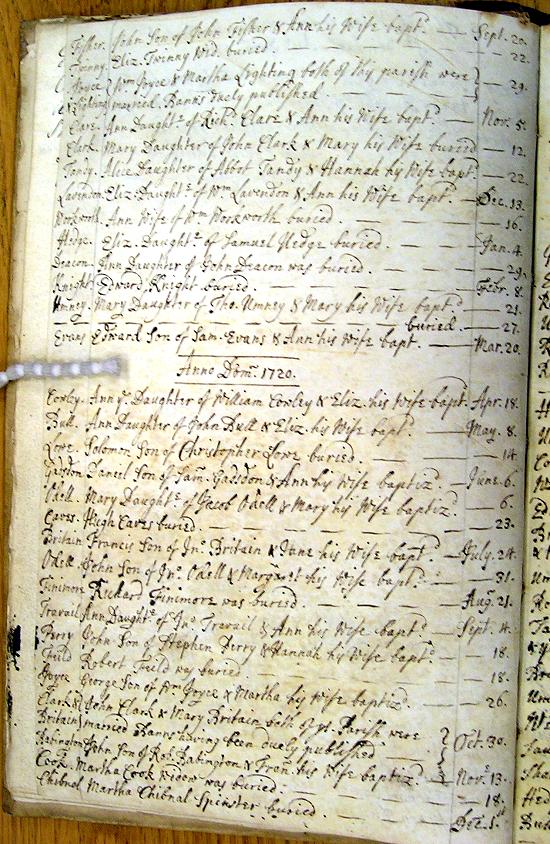 Fisher. John Son of John Fisher & Ann his Wife bapt. — Sept. 20.
Twinny. Eliz. Twinny Wid. buried. — — — — 22.
Joyce & Wm Joyce & Martha Lighting both of this parish were } — 29.
Lighting married. Banns duely published — —
Clare. Ann Daught. of Rich. Clare & Ann his Wife bapt. — Nov. 5.
Clark. Mary Daughter of John Clark & Mary his Wife buried — 12.
Tandy. Alice Daughter of Abbot Tandy & Hannah his Wife bapt. — 22.
Lavendon. Eliz. Daught. of Wm Lavendon & Ann his Wife bapt. — Dec. 13.
Workworth. Ann Wife of Wm Workworth buried. — — — 16.
Hedge. Eliz. Daught. of Samuel Hedge buried. — — Jan. 4.
Deacon. Ann Daughter of John Deacon was buried. — — — 29.
Knight Edward Knight buried. — — — — Febr. 8.
Umney. Mary Daughter of Tho. Umney & Mary his Wife bapt. — 21.
— — — — — — buried. — 27.
Evans Edward Son of Sam. Evans & Ann his Wife bapt. — Mar. 20.
Anno Dom. 1720.
Cowley. Ann Daughter of William Cowley & Eliz. his Wife bapt. Apr. 18.
Bull. Ann Daughter of John Bull & Eliz. his Wife bapt. — May. 8.
Lowe. Solomon Son of Christopher Lowe buried. — — — 14
Gadsdon Daniel Son of Sam. Gadsdon & Ann his Wife baptiz. — June. 6.
Odell. Mary Daught. of Jacob Odell & Mary his Wife baptiz. — 6.
Eaves. Hugh Eaves buried — — — — 23.
Britain Francis Son of Jno. Britain & Jane his Wife bapt. — July. 24.
Odell. John Son of Jno. Odell & Margaret his Wife bapt. — 31.
Finimore Richard Finimore was buried. — — — Aug. 21.
Travail Ann Daught. of Jno. Travail & Ann his Wife bapt. — Sept. 4.
Perry John Son of Stephen Perry & Hannah his Wife bapt. — 18.
Feild Robert Feild was buried — — — — 18.
Joyce George Son of Wm Joyce & Martha his Wife baptiz. — 26.
Clark & John Clark & Mary Britain both of yt. Parish were }
Britain married Banns having been duely published } Oct. 30.
Babington John Son of Rob. Babington & Fran. his Wife baptiz. — Nov. 13.
Cook. Martha Cook Widow was buried. — — — 18.
Chibnal Martha Chibnal Spinster buried. — — — Dec. 1st